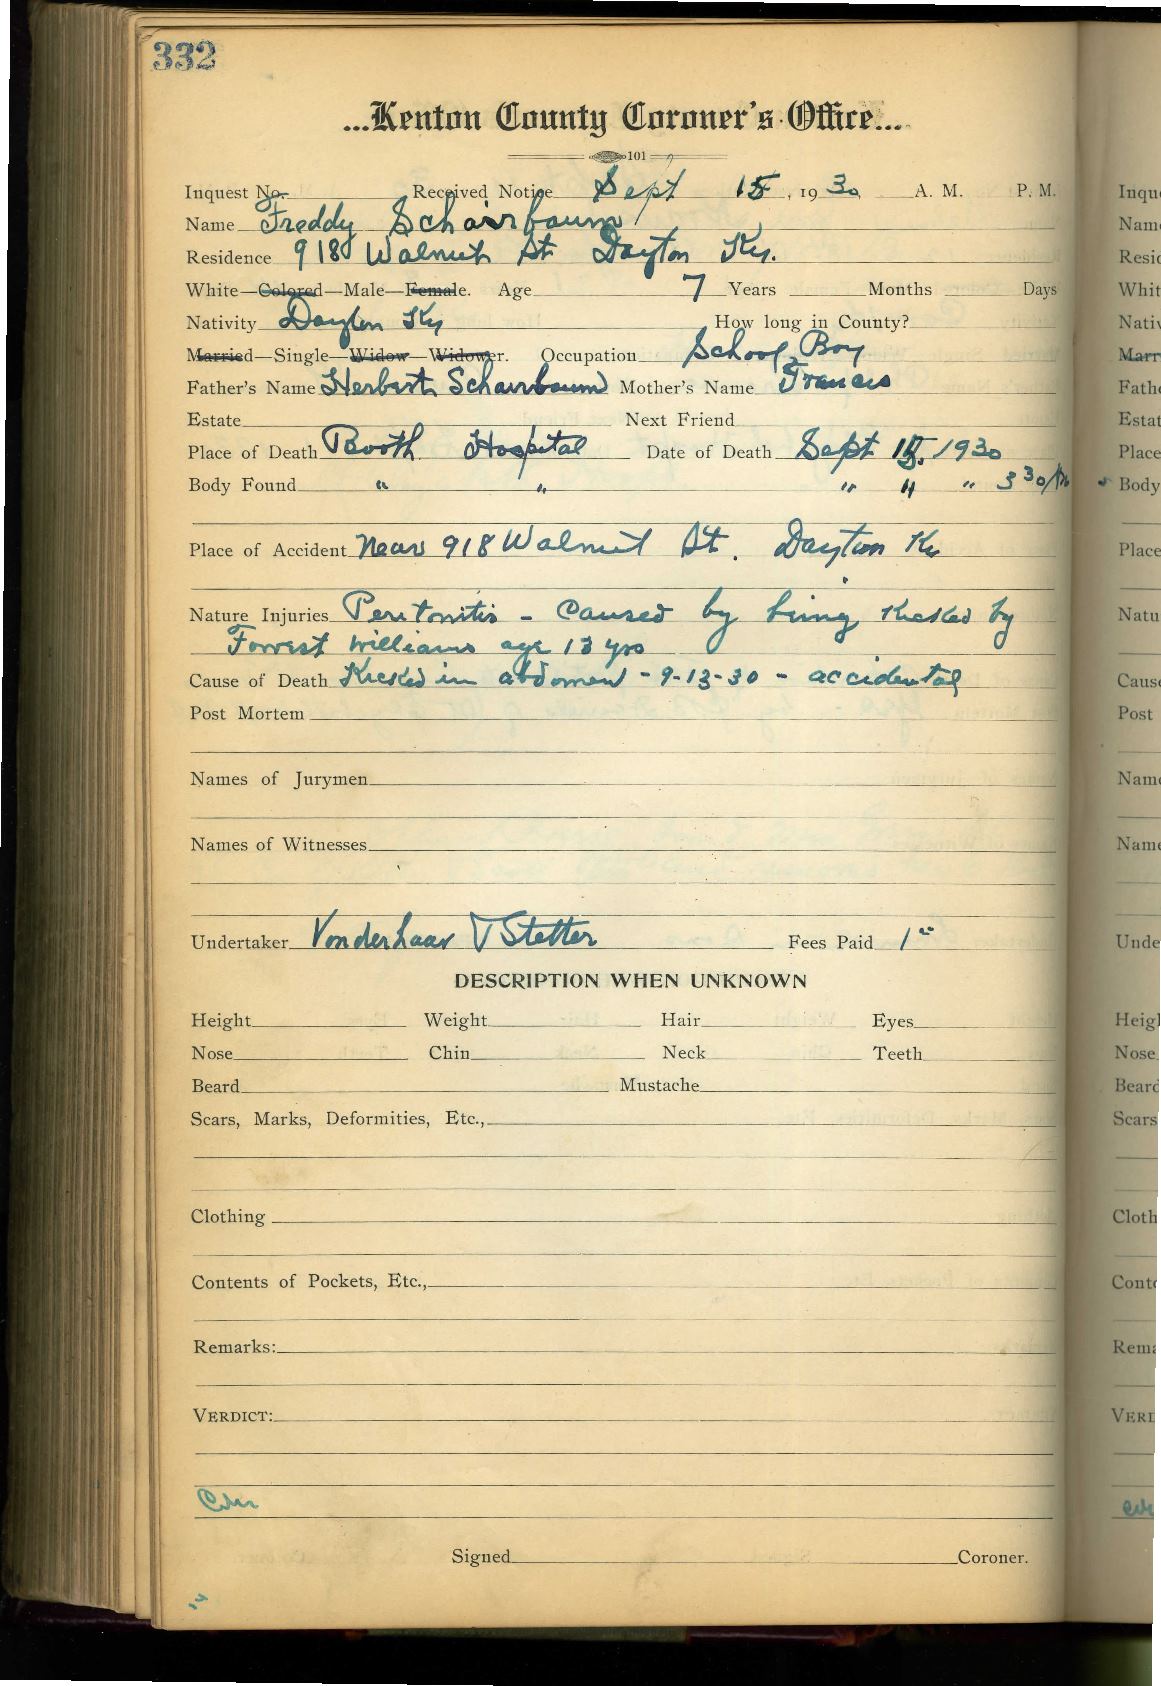 332
...Kenton County Coroner's Office...
101
Inquest No. Received Notice Sept 15, 1930 A. M. P. M.
Name Freddy Schairbaum
Residence 918 Walnut St Dayton Ky.
White—Colored—Male—Female. Age 7 Years Months Days
Nativity Dayton Ky How long in County?
Married—Single—Widow—Widower. Occupation School Boy
Father's Name Herbert Schairbaum Mother's Name Francis
Estate Next Friend
Place of Death Booth Hospital Date of Death Sept 15, 1930
Body Found " " " " " 3 30 PM
Place of Accident Near 918 Walnut St. Dayton Ky
Nature Injuries Peritonitis - Caused by being Kicked by
Forrest Williams age 13 yrs
Cause of Death Kicked in abdomen - 9-13-30 - accidental
Post Mortem
Names of Jurymen
Names of Witnesses
Undertaker Vonderhaar Stetter Fees Paid 1 00
DESCRIPTION WHEN UNKNOWN
Height Weight Hair Eyes
Nose Chin Neck Teeth
Beard Mustache
Scars, Marks, Deformities, Etc.,
Clothing
Contents of Pockets, Etc.,
Remarks:
VERDICT:
Signed Coroner.
Inqu
Name
Resid
Whit
Nativ
Marr
Fath
Estat
Place
Body
Place
Natu
Cause
Post
Name
Name
Unde
Heigl
Nose
Beard
Scars
Cloth
Conte
Rema
VERI